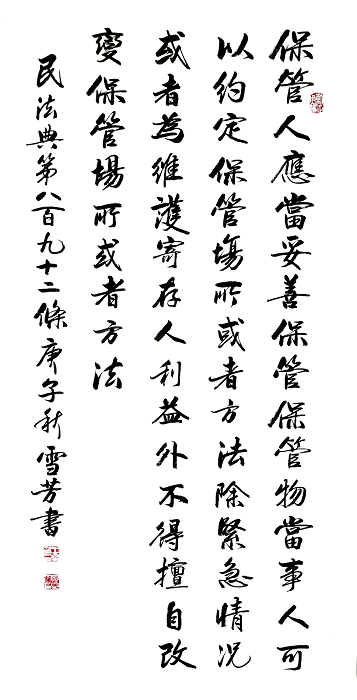 保管人應當妥善保管保管物當事人可
以約定保管場所或者方法除緊急情况
或者為維護寄存人利益外不得擅自改
變保管場所或者方法
民法典第八百九十二條庚子秋雪芳書